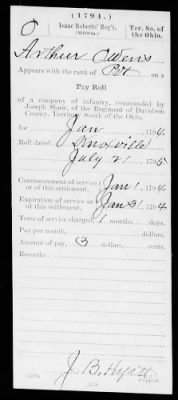 (1794.)
O
Isaac Roberts' Reg't.
(MILITIA.)
Ter. So. of
the Ohio.
Arthur Owens
Appears with the rank of Pvt on
Pay Roll
of a company of infantry, commanded by
Joseph Shaw, of the Regiment of Davidson
County, Territory South of the Ohio,
for Jan , 1794
Roll dated Knoxville
July 21 , 1795
Commencement of service
of this settlement, Jan 1 , 1794
Expiration of service
of this settlement, Jan 31 , 1794
Term of service charged, 1 months, days.
Pay per month, dollars.
Amount of pay, 3 dollars, cents.
Remarks:
J. B. Hyatt